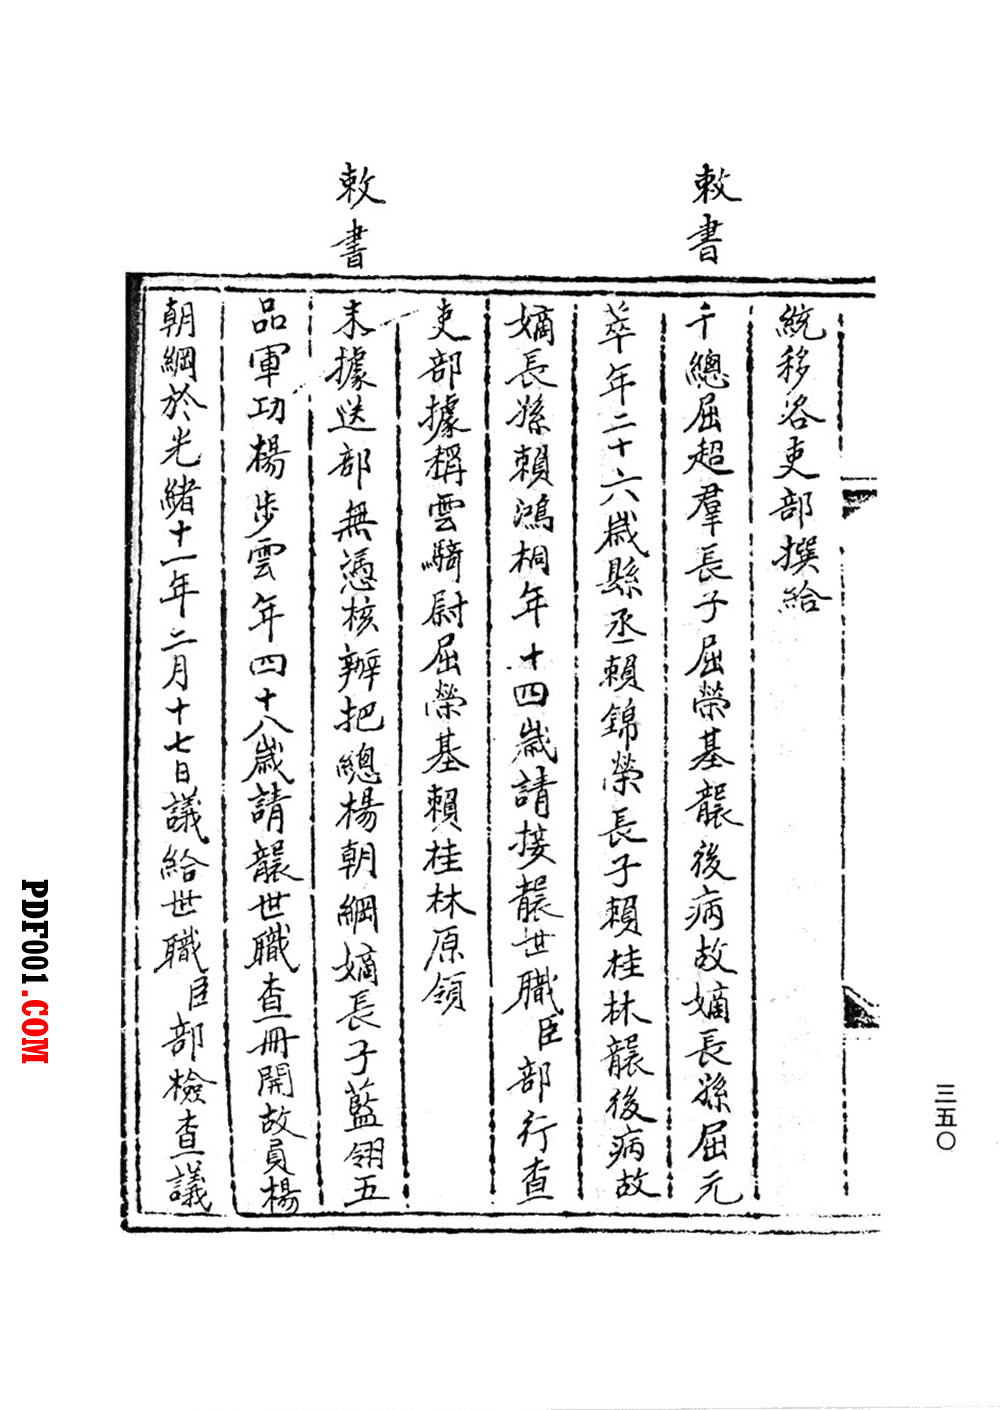 統移咨吏部撰給
敕書
千總屈超羣長子屈榮基襲後病故嫡長孫屈元
萃年二十六歲縣丞賴錦榮長子賴桂林襲後病故
嫡長孫賴鴻桐年十四歲請接襲世職臣部行查
吏部據稱雲騎尉屈榮基賴桂林原領
敕書
未據送部無憑核辦把總楊朝綱嫡長子藍翎五
品軍功楊步雲年四十八歲請襲世職查冊開故員楊
朝綱於光緒十一年二月十七日議給世職臣部檢查議
三五〇
PDF001.COM